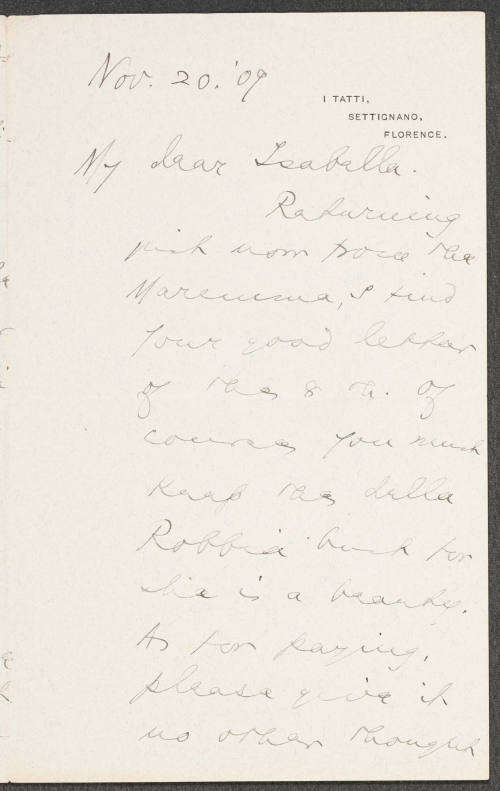 Nov. 20. '09
I TATTI,
SETTIGNANO,
FLORENCE.
My dear Isabella.
Returning
just now from the
Maremma, I find
your good letter
of the 8 th. Of
course you must
keep the della
Robbia bust for
she is a beauty.
As for paying,
please give it
no other thought